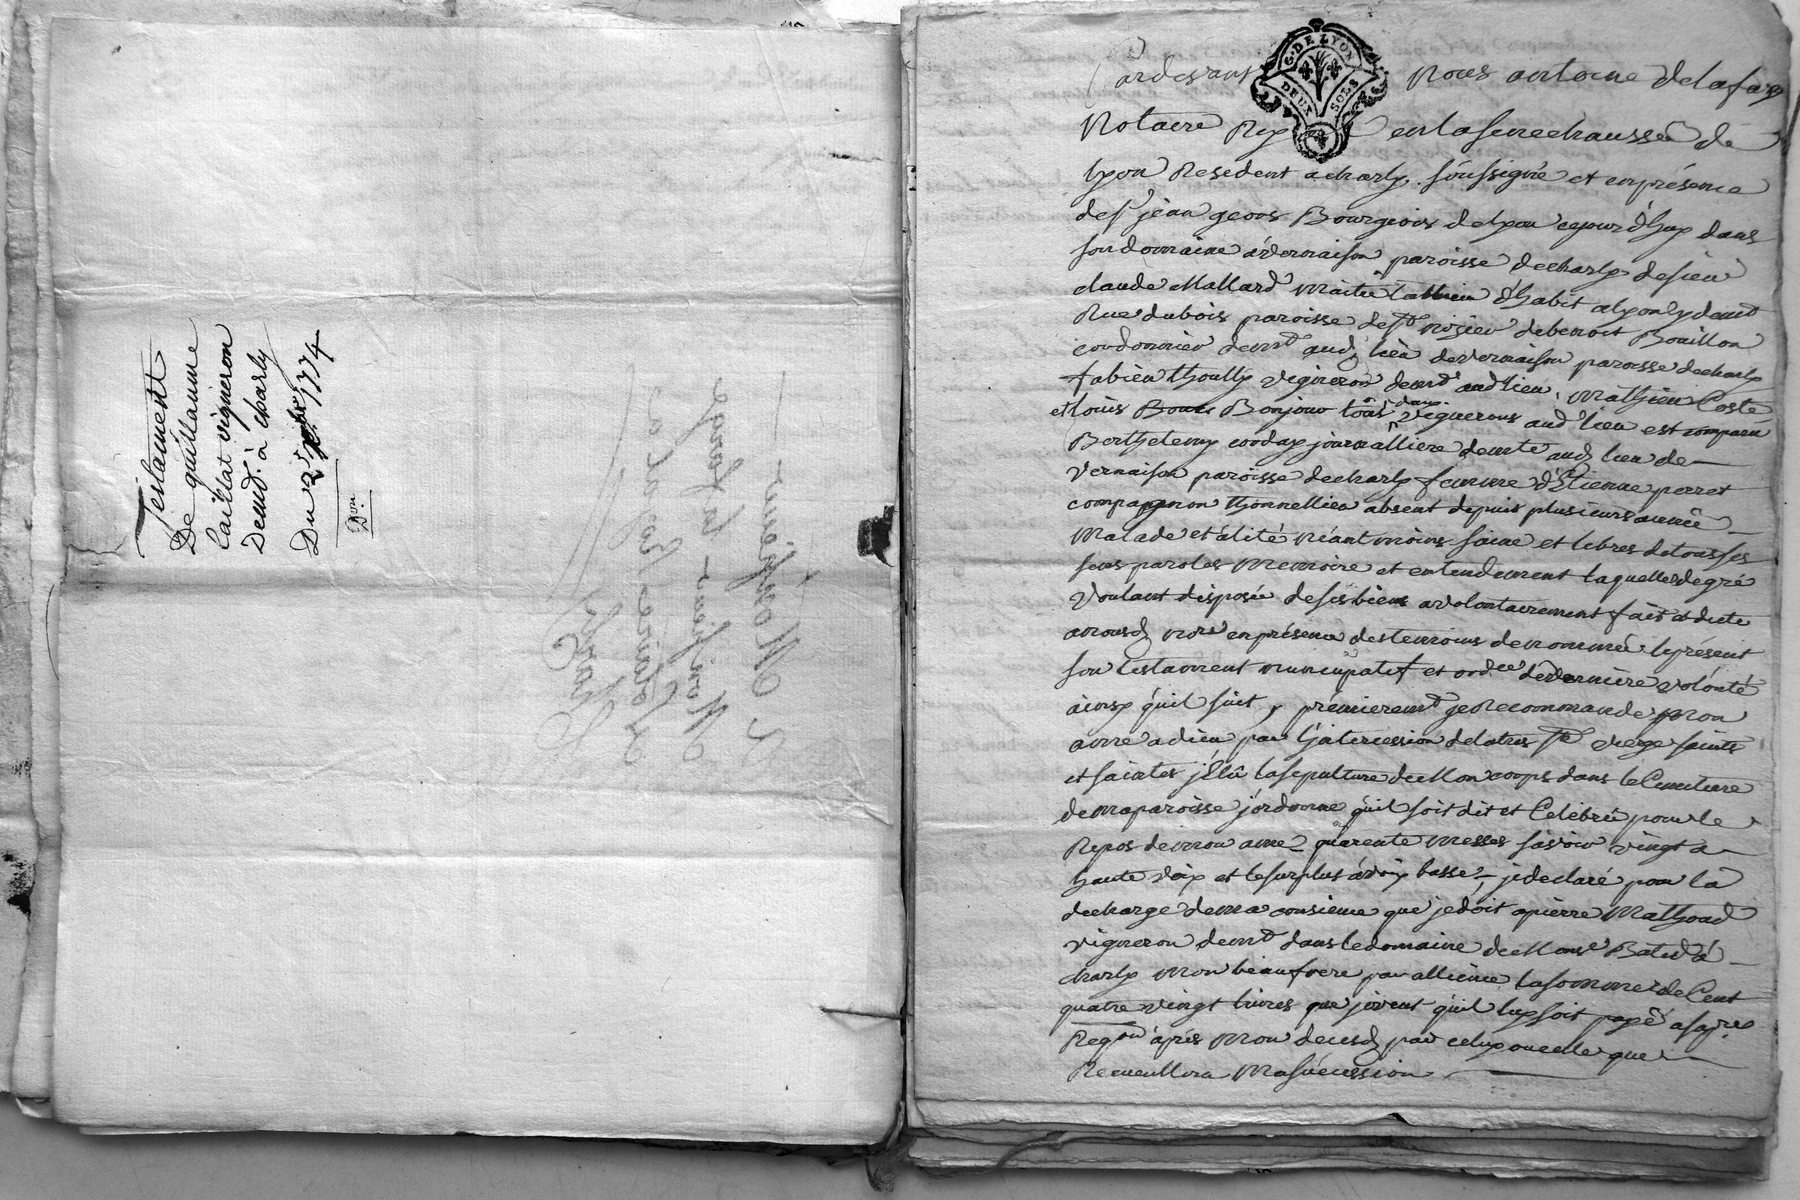 Testament
De guillaume
Laillat vigneron
Demt. à charly
Du 2 xbre 1774
Don
Pardevant Nous antoine Delafay
Notaire Roy en la senechaussee de
Lyon Resident a charly, soussigné et en présence
de sr jean geoos Bourgeois de lyon cejourdhuy dans
son domaine à vernaison paroisse de charly de sieur
claude Mallard Maitre tallieur d'habit a lyon y demt
Rue dubois paroisse de st nizier de benoit Bouillon
cordonnier demt aud lieu de vernaison paroisse de charly
fabien thoully vigneron demt aud lieu, Mathieu Coste
et Loüis Bonjour tous deux vignerons aud lieu est comparu
Berthelemy journalliere demte aud lieu de
Vernaison paroisse de charly femme d'Etienne perret
compagnon thonnellier absent depuis plusieurs année
Malade et alité néantmoins saine et libres de tous ses
sens paroles Memoire et entendement laquelle de gré
Voulant disposée de ses biens a volontairement fait et dicte
anousd nore en présence des temoins denommé le présent
son testament nuncupatif et ordce de derniere volonté
ainsy qu'il suit, premieremt je Recommande Mon
ame a dieu par l'intercession de la tres ste vierge saints
et saintes j'Elû la sepulture de Mon corps dans le Cimetiere
de ma paroisse j'ordonne qu'il soit dit et Celebré pour le
Repos de mon ame quarente messes savoir vingt a
haute voix et le surplus à voix basse, je declaré pour la
decharge de ma consience que je doit a pierre Mathoud
vigneron demt dans le domaine de Monsr Balud à
charly mon beaufrere par allience la somme de Cent
quatre vingt livres que j'ivent qu'il luy soit payé a sa pre
Reqon après Mon decesd par celuy ou celle que
Recueullira Ma sucussion